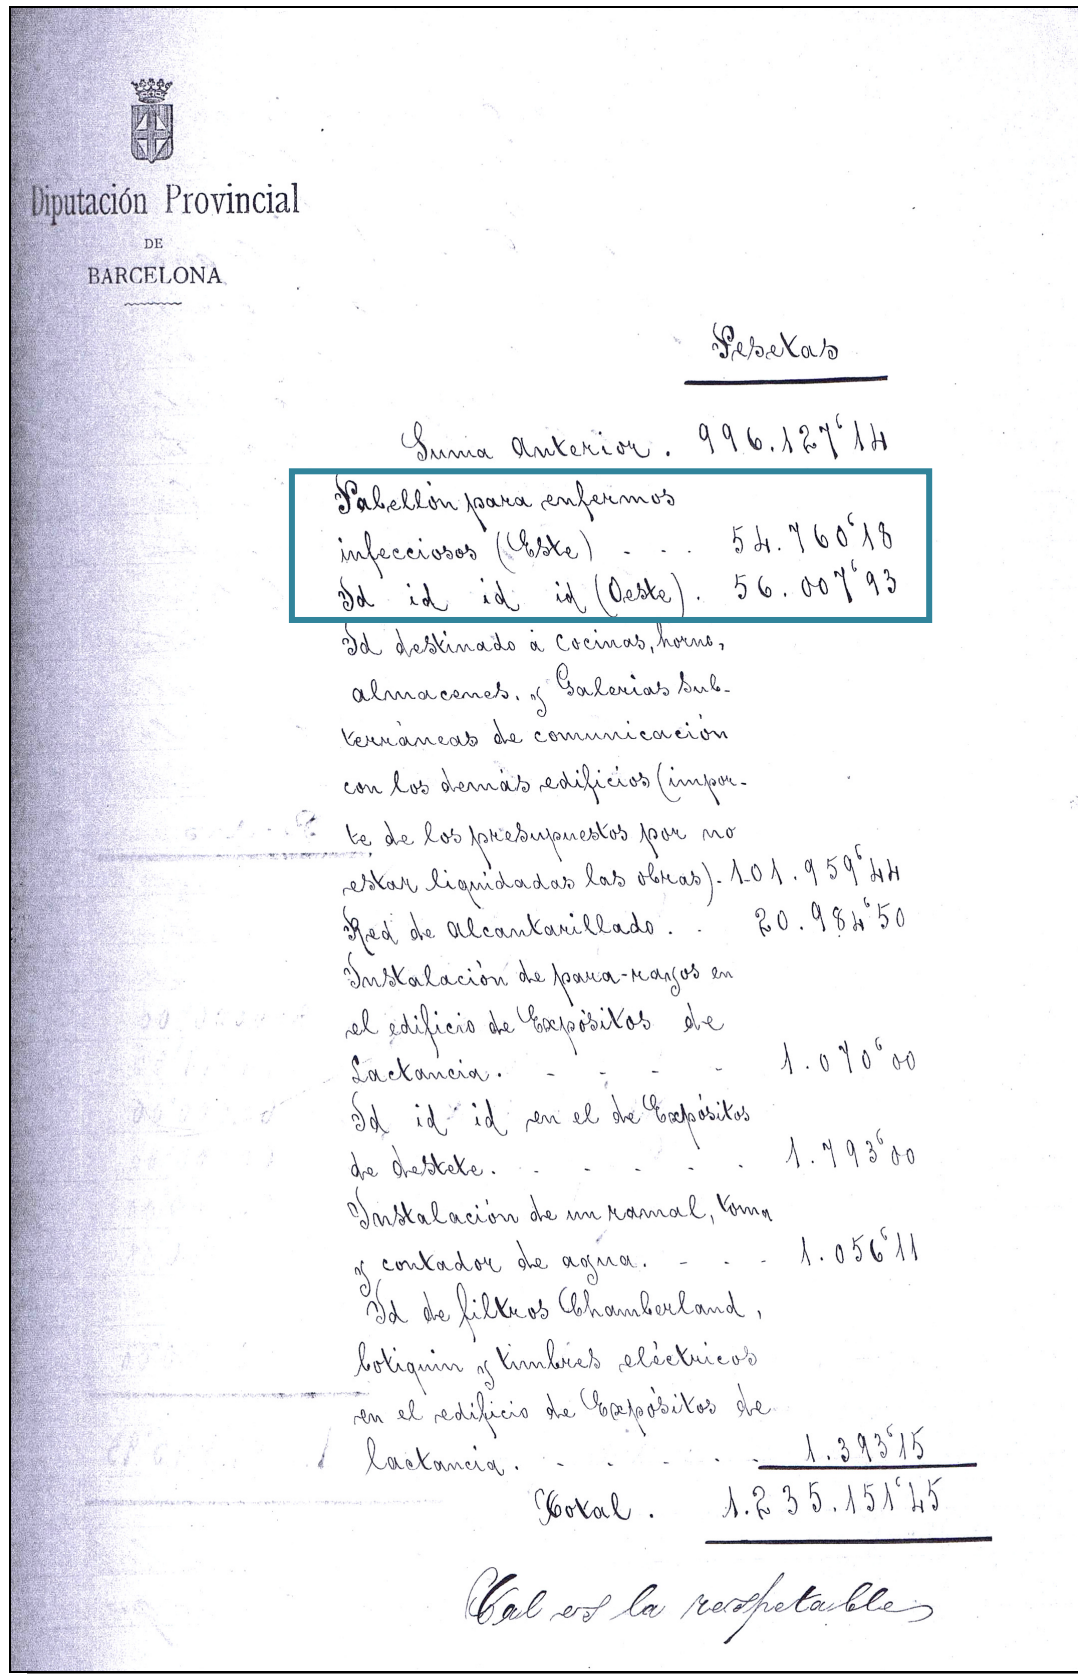 Diputación Provincial
DE
BARCELONA
Pesetas
Suma Anterior. 996.127'14
Pabellón para enfermos
infecciosos (Este) - - - 54.760'18
Id id id id (Oeste). 56.007'93
Id destinado á cocinas, horno,
almacenes. y Galerias Sub-
terráneas de comunicación
con los demás edificios (impor-
te de los presupuestos por no
estar liquidadas las obras). 101.959'44
Red de Alcantarillado. . 20.984'50
Instalación de para-rayos en
el edificio de Expósitos de
Lactancia. - - - - 1.070'00
Id id id en el de Expósitos
de destete. - - - - - 1.793'00
Instalación de un ramal, toma
y contador de agua. - - - 1.056'11
Id de filtros Chamberland,
botiquin y timbres eléctricos
en el edificio de Expósitos de
lactancia. - - - - - 1.393'15
Total. 1.235.151'45
Tal es la respetable